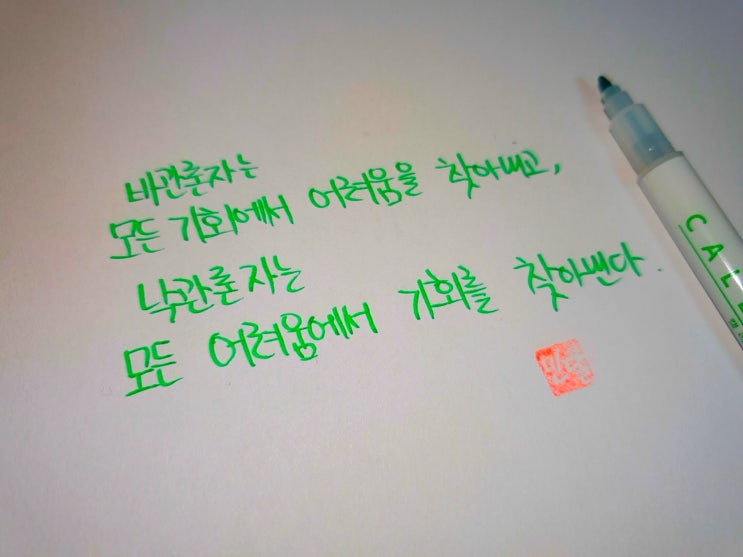 비관론자는
모든 기회에서 어려움을 찾아내고,
낙관론자는
모든 어려움에서 기회를 찾아낸다.
CALL